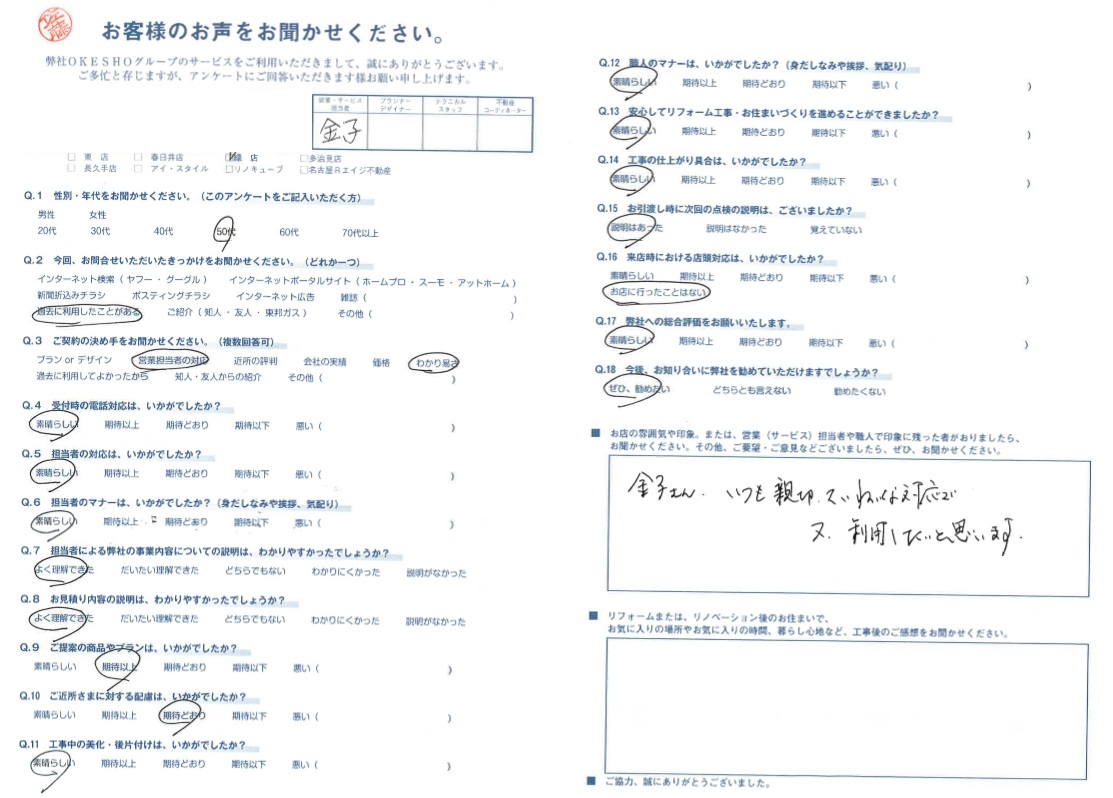 佐藤
お客様のお声をお聞かせください。
弊社OKESHOグループのサービスをご利用いただきまして、誠にありがとうございます。
ご多忙と存じますが、アンケートにご回答いただきます様お願い申し上げます。
営業・サービス担当者 プランナーデザイナー テクニカルスタッフ 不動産コーディネーター
金子
□ 東 店 □ 春日井店 □緑 店 □多治見店
□ 長久手店 □ アイ・スタイル □リノキューブ □名古屋Rエイジ不動産
Q.1 性別・年代をお聞かせください。（このアンケートをご記入いただく方）
男性 女性
20代 30代 40代 50代 60代 70代以上
Q.2 今回、お問合せいただいたきっかけをお聞かせください。（どれか一つ）
インターネット検索（ ヤフー ・ グーグル ） インターネットポータルサイト（ ホームプロ ・ スーモ ・ アットホーム ）
新聞折込みチラシ ポスティングチラシ インターネット広告 雑誌（ ）
過去に利用したことがある ご紹介（ 知人 ・ 友人 ・ 東邦ガス ） その他（ ）
Q.3 ご契約の決め手をお聞かせください。（複数回答可）
プラン or デザイン 営業担当者の対応 近所の評判 会社の実績 価格 わかり易さ
過去に利用してよかったから 知人・友人からの紹介 その他（ ）
Q.4 受付時の電話対応は、いかがでしたか？
素晴らしい 期待以上 期待どおり 期待以下 悪い（ ）
Q.5 担当者の対応は、いかがでしたか？
素晴らしい 期待以上 期待どおり 期待以下 悪い（ ）
Q.6 担当者のマナーは、いかがでしたか？（身だしなみや挨拶、気配り）
素晴らしい 期待以上 期待どおり 期待以下 悪い（ ）
Q.7 担当者による弊社の事業内容についての説明は、わかりやすかったでしょうか？
よく理解できた だいたい理解できた どちらでもない わかりにくかった 説明がなかった
Q.8 お見積り内容の説明は、わかりやすかったでしょうか？
よく理解できた だいたい理解できた どちらでもない わかりにくかった 説明がなかった
Q.9 ご提案の商品やプランは、いかがでしたか？
素晴らしい 期待以上 期待どおり 期待以下 悪い（ ）
Q.10 ご近所さまに対する配慮は、いかがでしたか？
素晴らしい 期待以上 期待どおり 期待以下 悪い（ ）
Q.11 工事中の美化・後片付けは、いかがでしたか？
素晴らしい 期待以上 期待どおり 期待以下 悪い（ ）
Q.12 職人のマナーは、いかがでしたか？（身だしなみや挨拶、気配り）
素晴らしい 期待以上 期待どおり 期待以下 悪い（ ）
Q.13 安心してリフォーム工事・お住まいづくりを進めることができましたか？
素晴らしい 期待以上 期待どおり 期待以下 悪い（ ）
Q.14 工事の仕上がり具合は、いかがでしたか？
素晴らしい 期待以上 期待どおり 期待以下 悪い（ ）
Q.15 お引渡し時に次回の点検の説明は、ございましたか？
説明はあった 説明はなかった 覚えていない
Q.16 来店時における店頭対応は、いかがでしたか？
素晴らしい 期待以上 期待どおり 期待以下 悪い（ ）
お店に行ったことはない
Q.17 弊社への総合評価をお願いいたします。
素晴らしい 期待以上 期待どおり 期待以下 悪い（ ）
Q.18 今後、お知り合いに弊社を勧めていただけますでしょうか？
ぜひ、勧めたい どちらとも言えない 勧めたくない
■ お店の雰囲気や印象。または、営業（サービス）担当者や職人で印象に残った者がおりましたら、
お聞かせください。その他、ご要望・ご意見などございましたら、ぜひ、お聞かせください。
金子さん、いつも親切、ていねいな対応で
又、利用したいと思います。
■ リフォームまたは、リノベーション後のお住まいで、
お気に入りの場所やお気に入りの時間、暮らし心地など、工事後のご感想をお聞かせください。
■ ご協力、誠にありがとうございました。